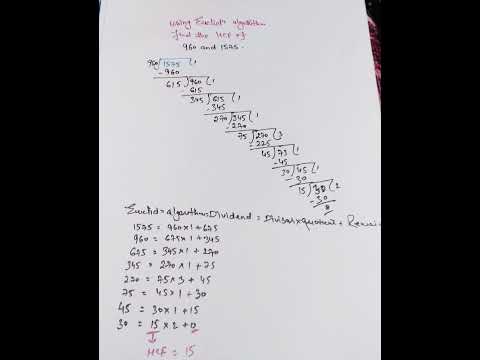 using Euclid's algorithm
find the HCF of
960 and 1575.
960) 1575 (1
- 960
615) 960 (1
- 615
345) 615 (1
- 345
270) 345 (1
- 270
75) 270 (3
- 225
45) 75 (1
- 45
30) 45 (1
- 30
15) 30 (2
- 30
0
Euclid = algorithm = Dividend = Divisor × quotient +
1575 = 960 × 1 + 675
960 = 675 × 1 + 345
675 = 345 × 1 + 270
345 = 270 × 1 + 75
270 = 75 × 3 + 45
75 = 45 × 1 + 30
45 = 30 × 1 + 15
30 = 15 × 2 + 0
HCF = 15